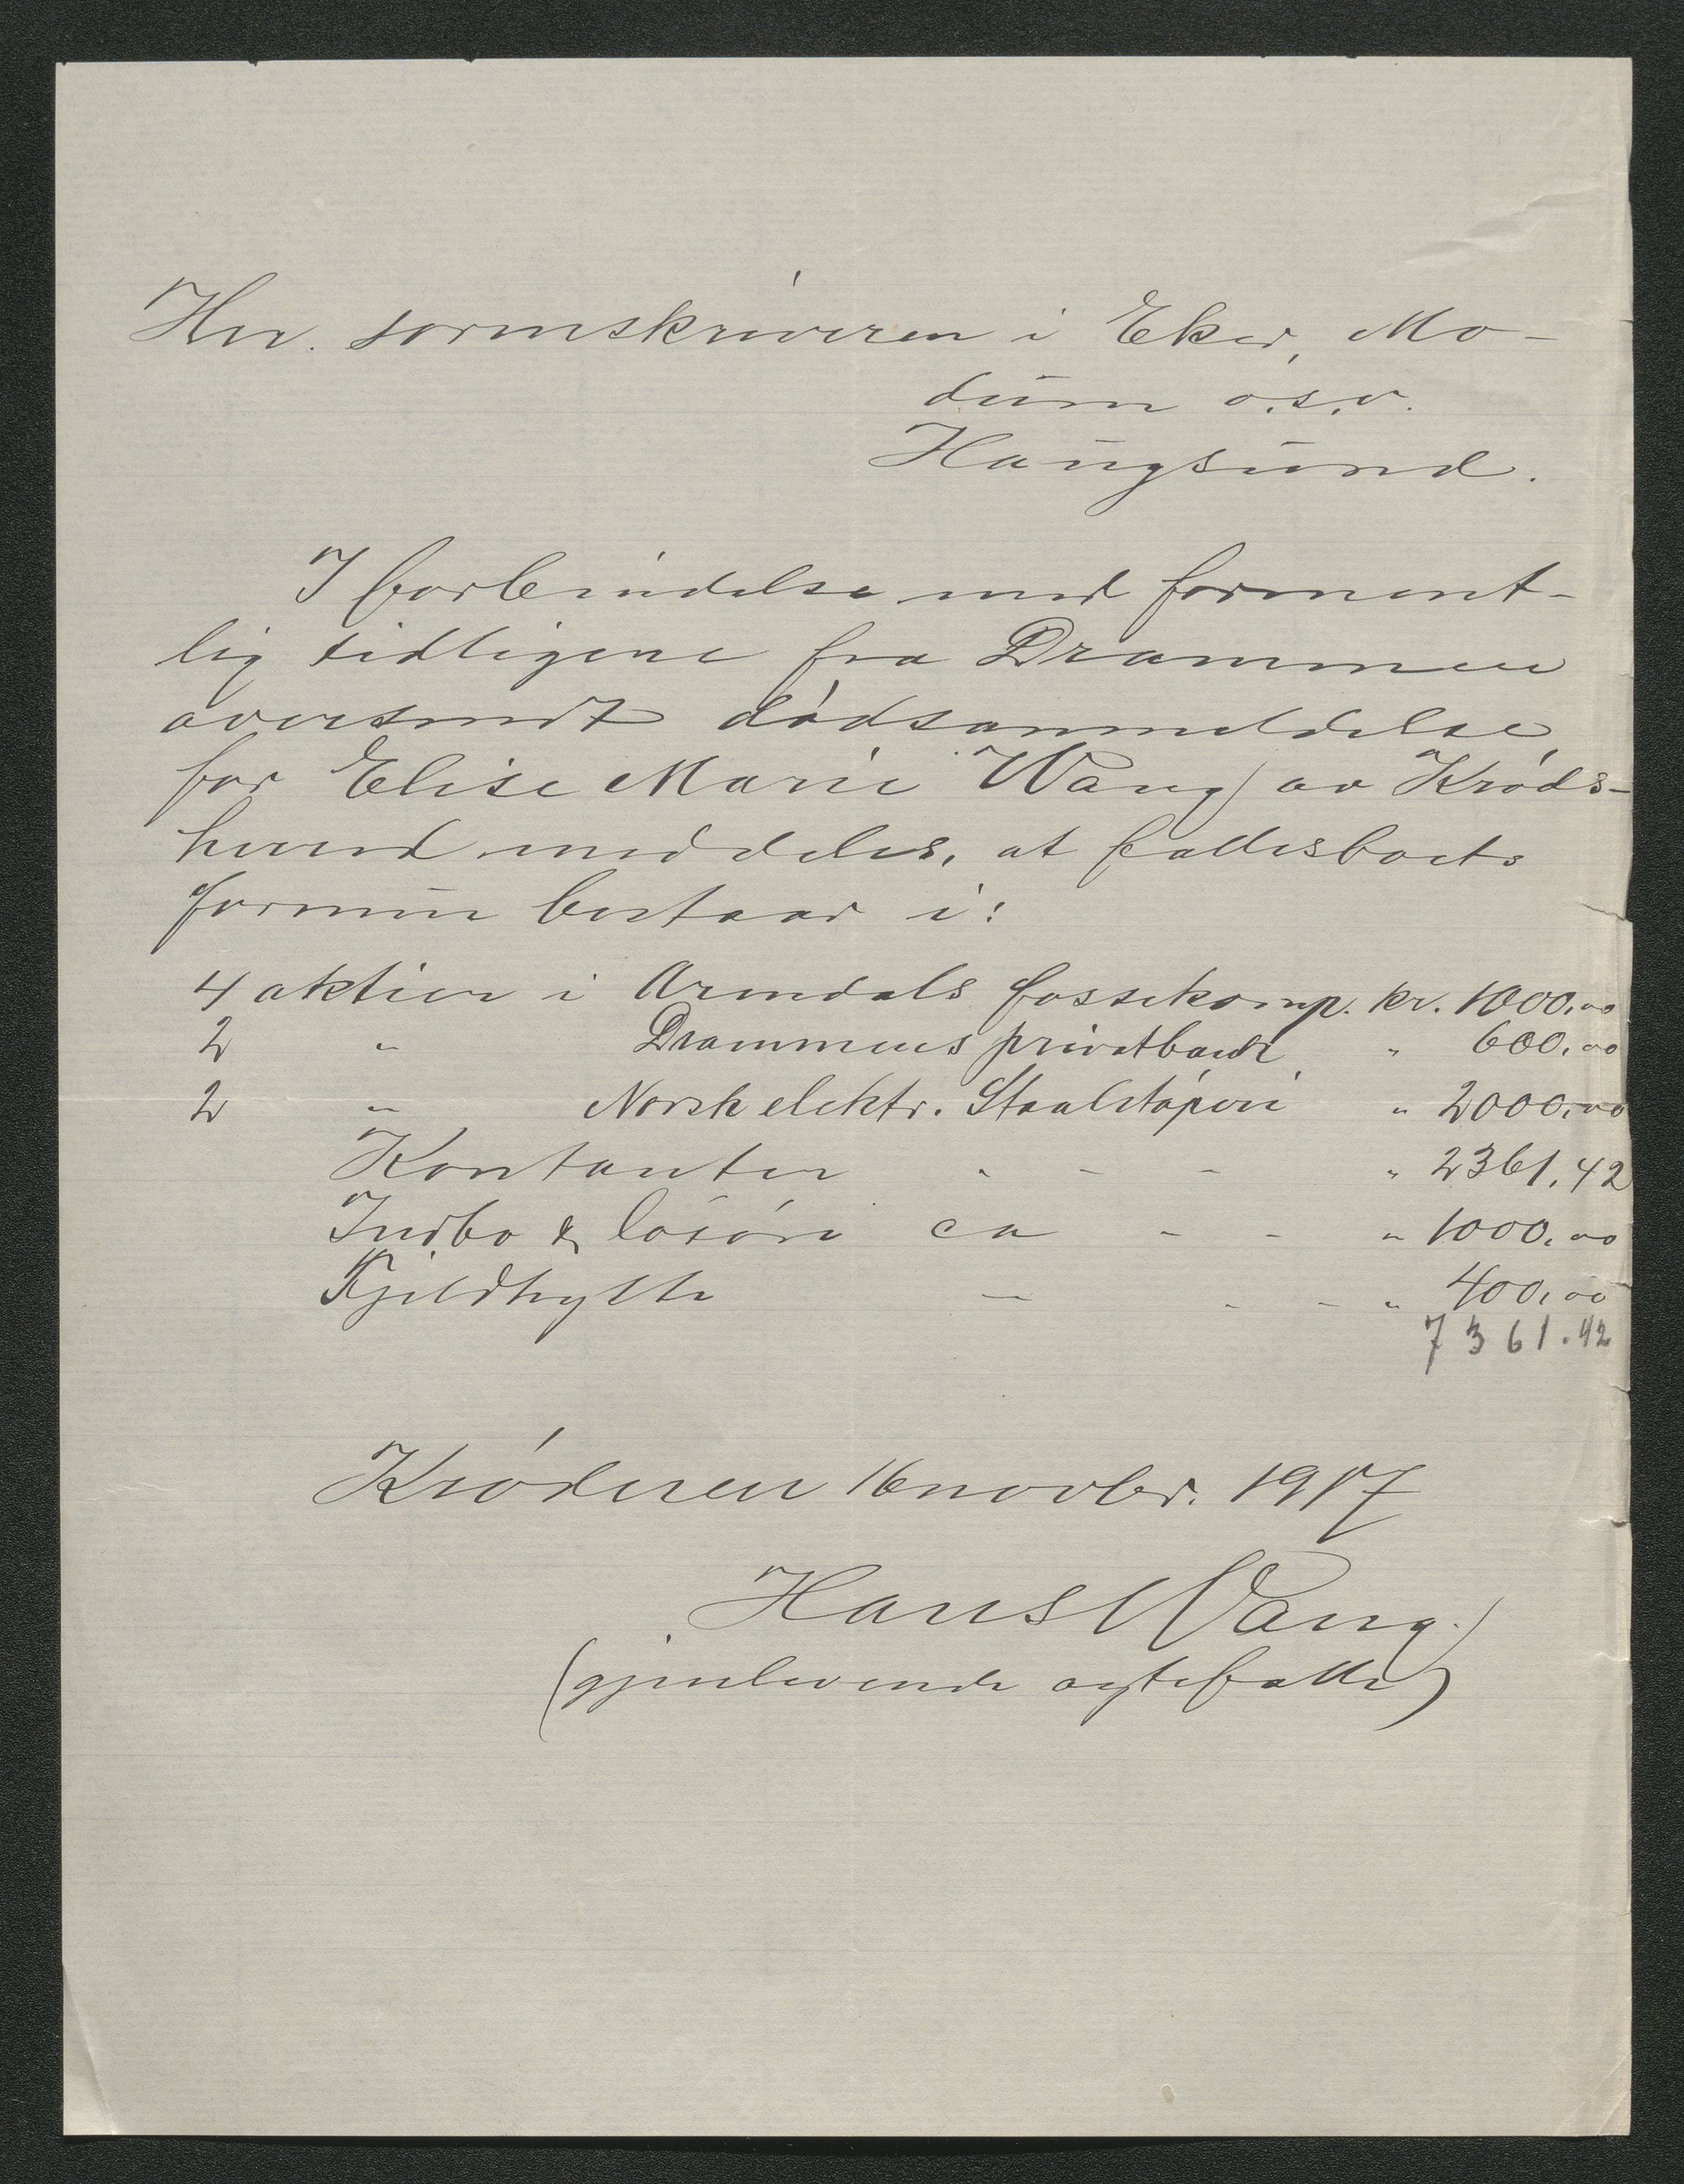 Hr. sorenskriveren i Eker, Mo-
dum o.s.v.
Haugsund.
I forbindelse med forment-
lig tidligere fra Drammen
oversendt dødsanmeldelse
for Elise Marie Wang av Kröds-
herred meddeles, at fællesboets
formue bestaar i:
4 aktier i Arendals fossekomp. kr. 1000,00
2 " Drammens privatbank " 600,00
2 " Norsk elektr. Staalstøperi " 2000,00
Kontanter - - - " 2361,42
Indbo & løsøre ca - - " 1000,00
Fjeldhytte — - - " 400,00
7361.42
Krøderen 16 novbr. 1917
Hans Wang.
(gjenlevende ægtefælle)